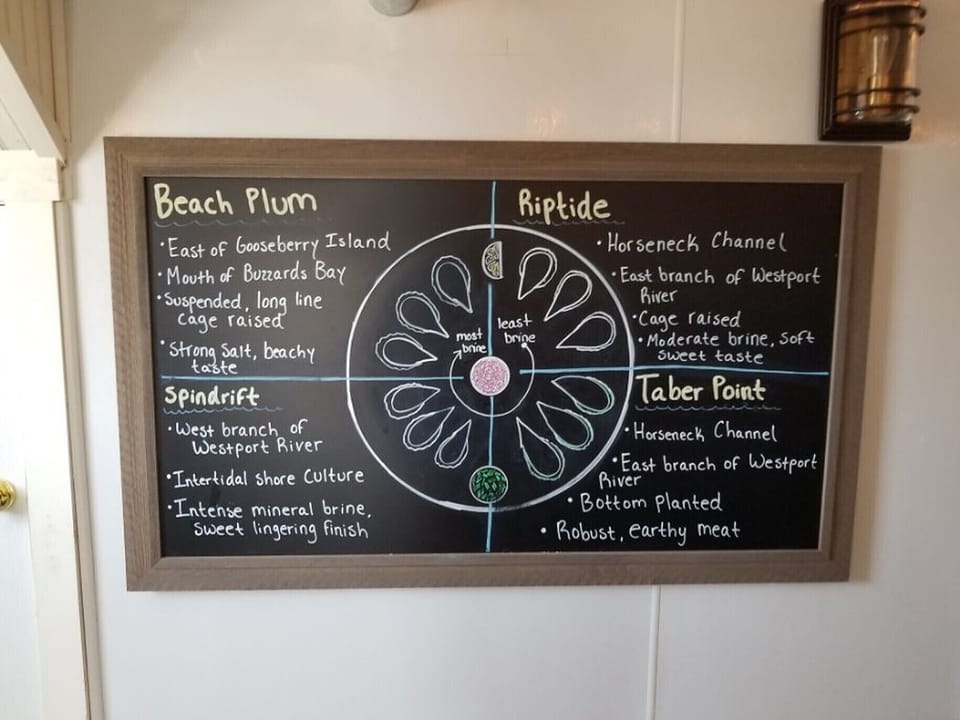 Beach Plum
• East of Gooseberry Island
• Mouth of Buzzards Bay
• Suspended, long line
cage raised
• Strong Salt, beachy
taste
Riptide
• Horseneck Channel
• East branch of Westport
River
• Cage raised
• Moderate brine, soft
sweet taste
most
brine
least
brine
Spindrift
• West branch of
Westport River
• Intertidal shore Culture
• Intense mineral brine,
sweet lingering finish
Taber Point
• Horseneck Channel
• East branch of Westport
River
• Bottom Planted
• Robust, earthy meat